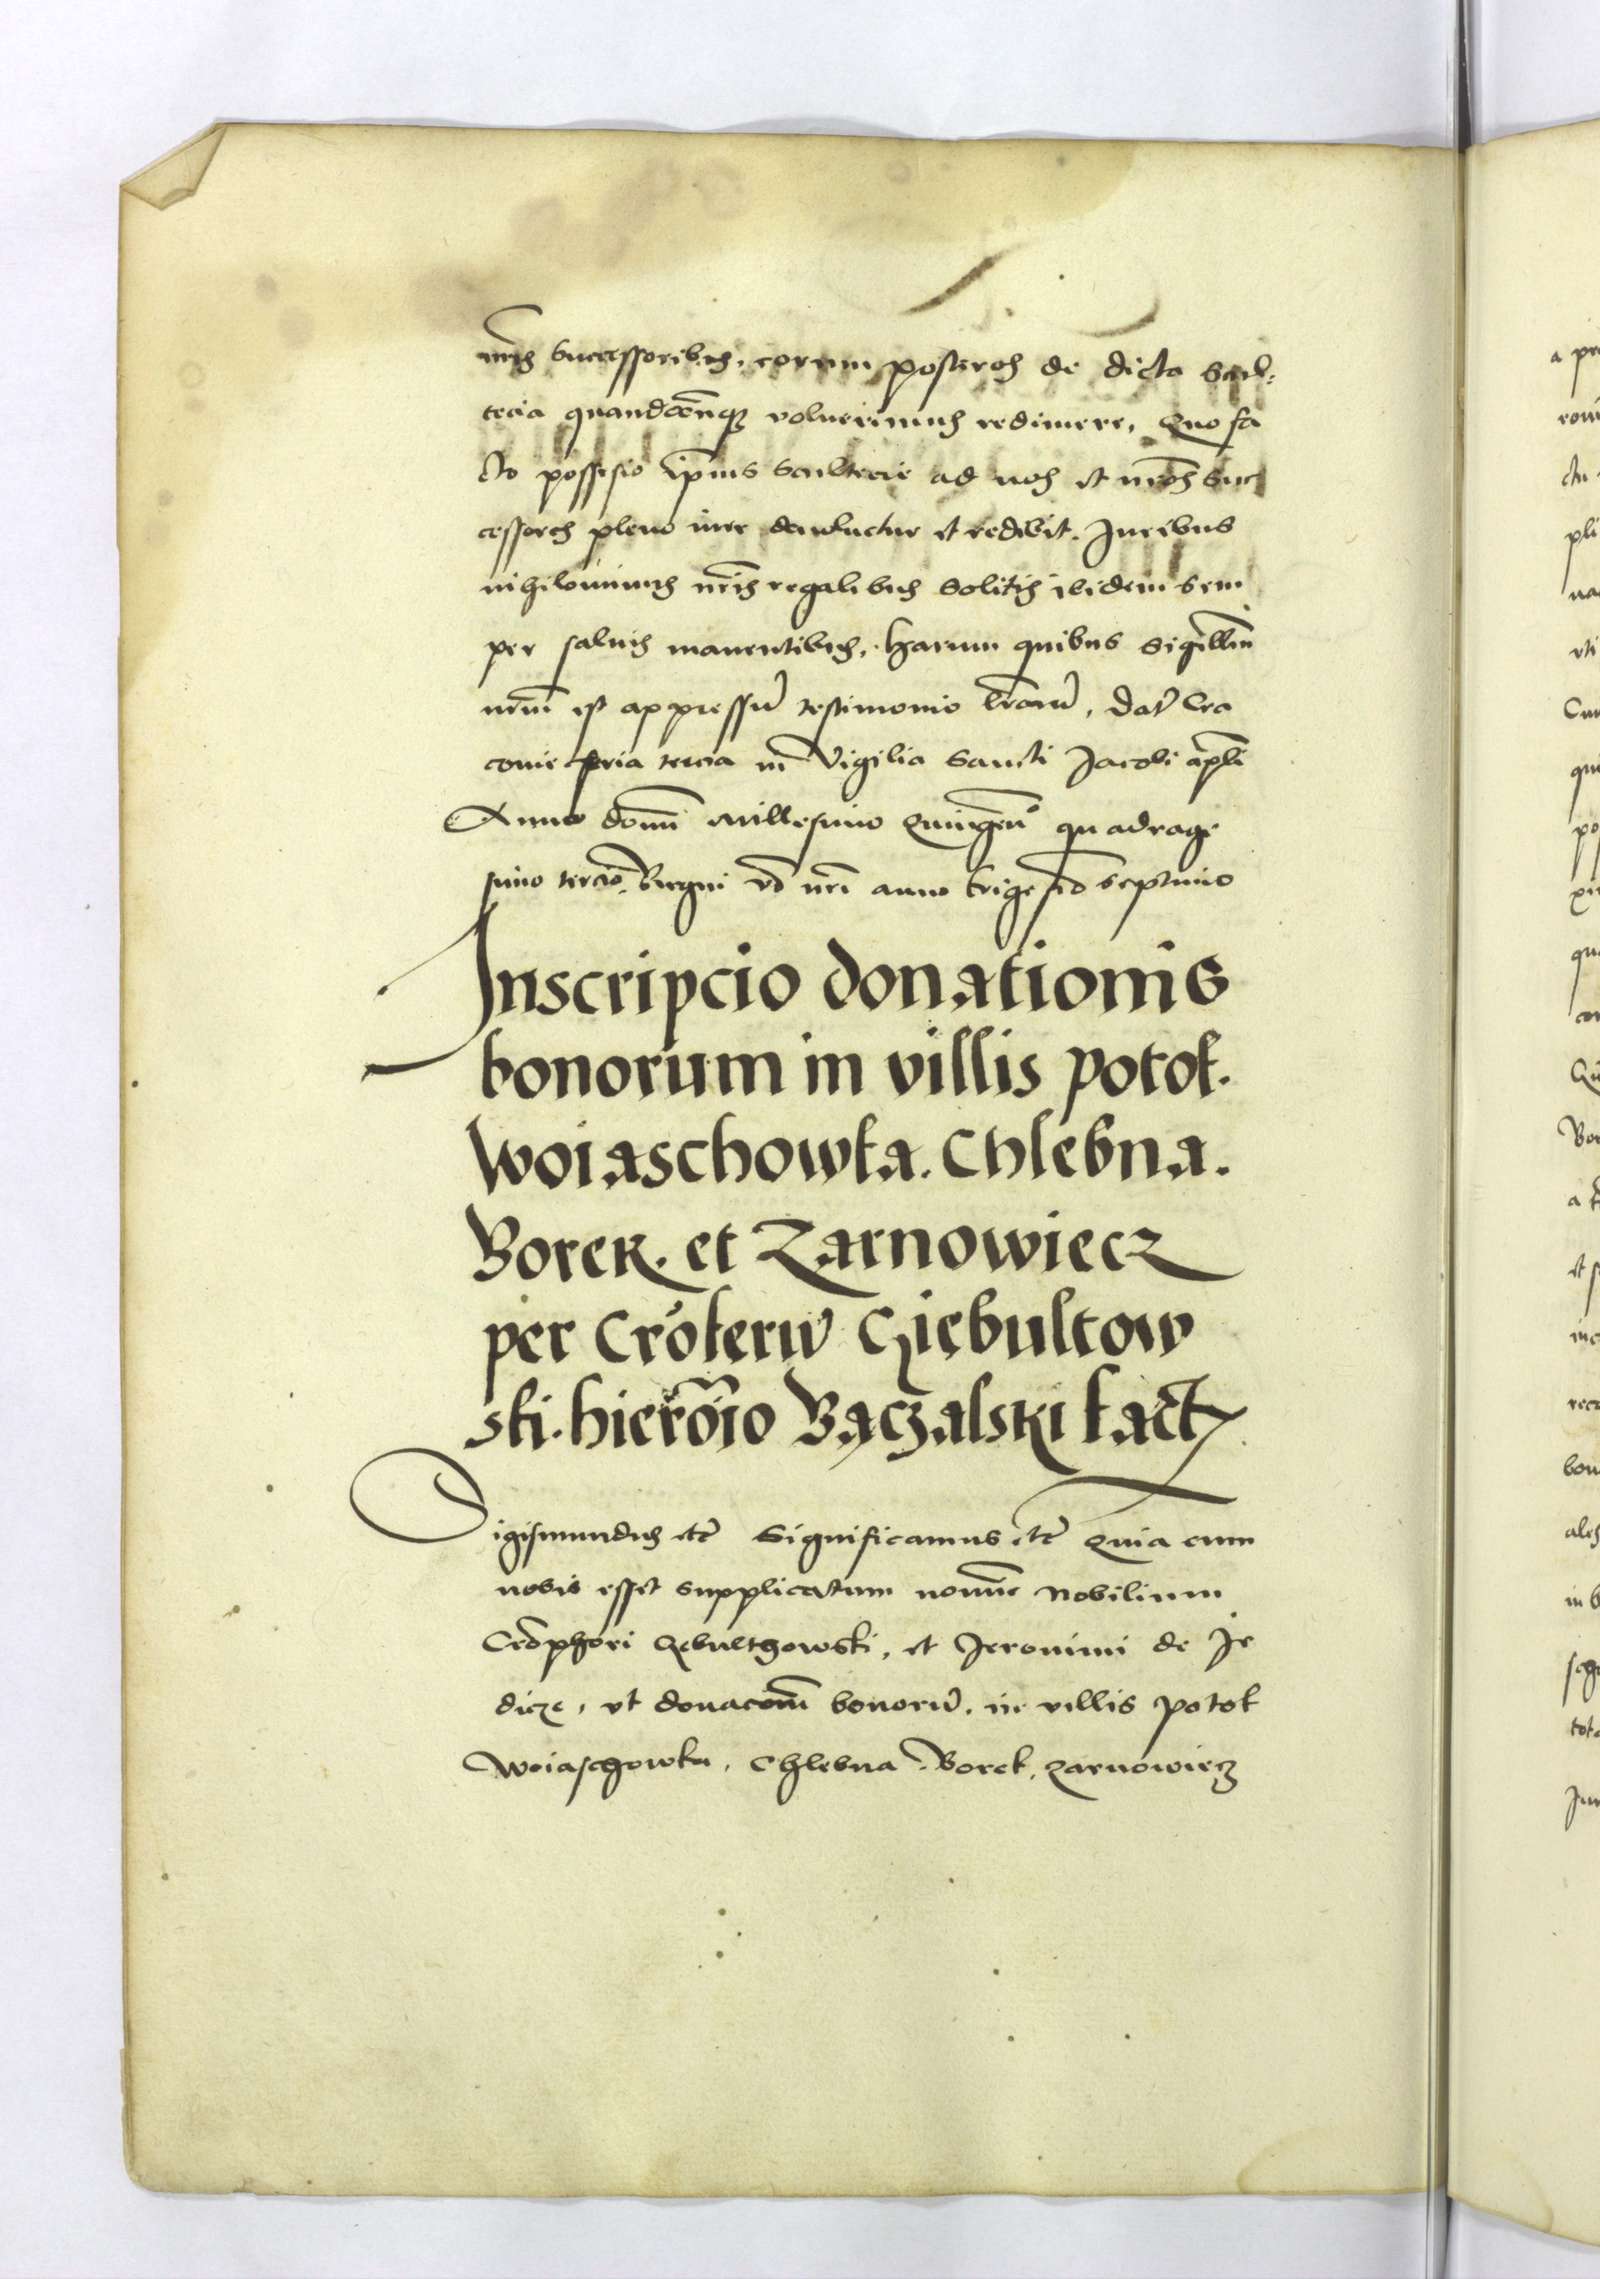 nr̄is successoribus, eorum posteros de dicta Scul-
tecia quandocūq; voluerimus redimere, Quo fa
cto possesio ip̄ius Scultecie ad nos et nr̄os Suc
cessores pleno iure deuoluetur et redibit. Juribus
nihilominus nr̄is regalibus solitis ibidem sem
per saluis manentibus. Harum quibus sigillūm
nr̄um est appressū testimonio l̄rarū, Dat̄ Cra
couie feria tercia in Vigilia Sancti Jacobi ap̄li
Anno domī Millesimo Quingen̄o quadrage
simo tercio, Regni v̄o nr̄i anno trigesīo septimo
Inscripcio donationis
bonorum in villis potok.
Woiaschowka. Chlebna.
Borek. et Zarnowiecz
per Cr̄oferū Cziebultow
ski. hierōīo Baczalski fact
Sigismundus etc̄ Significamus etc̄ Quia cum
nobis esset supplicatum nomīne Nobilium
Cr̄ophori Zebulthowski, et Jeronimi de Je
dicze, vt donacōm̄ bonorū, in villis potok
Woiaschowka, Chlebna Borek, Zarnowiecz